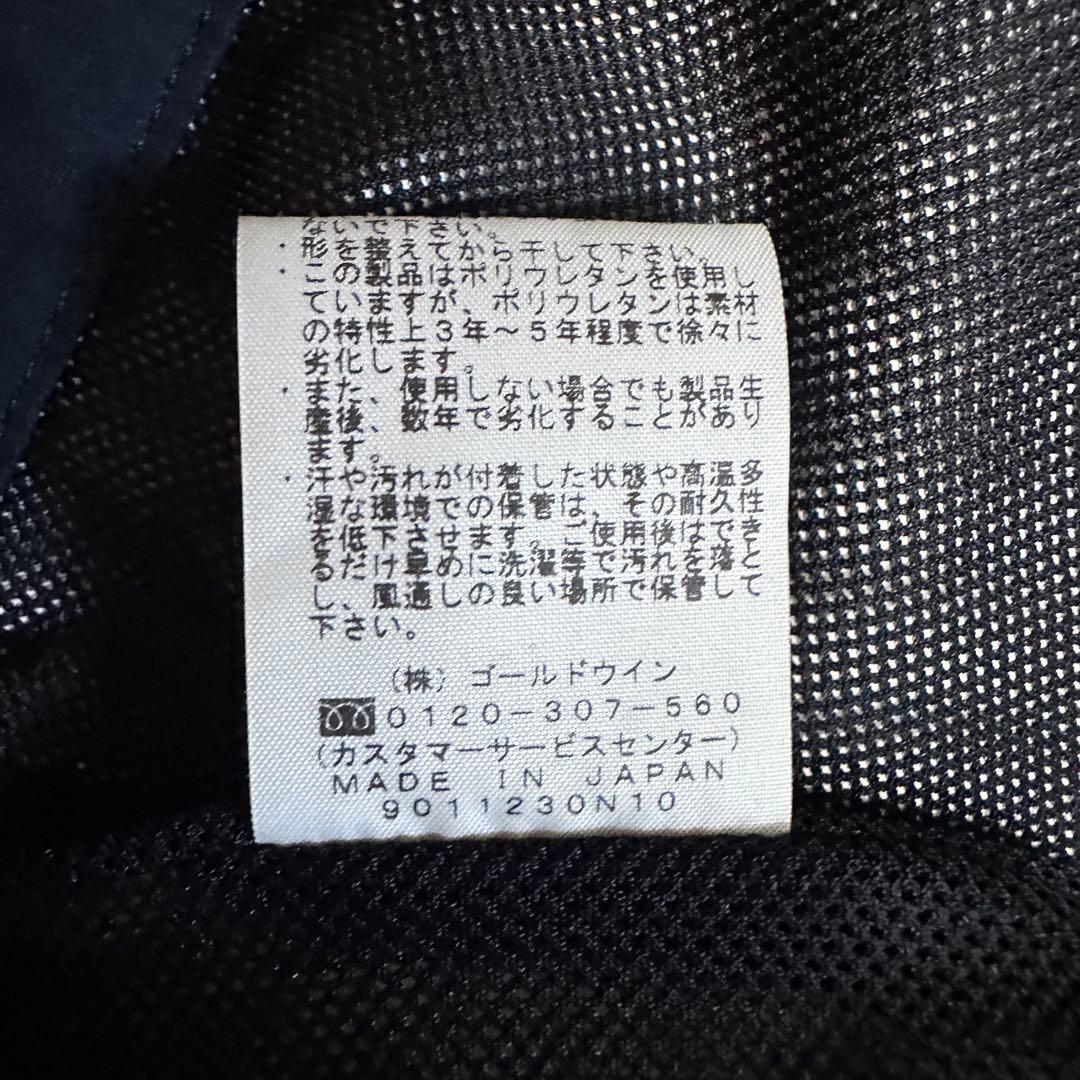 ないで下さい。
・形を整えてから干して下さい。
・この製品はポリウレタンを使用し
ていますが、ポリウレタンは素材
の特性上3年～5年程度で徐々に
劣化します。
・また、使用しない場合でも製品生
産後、数年で劣化することがあり
ます。
・汗や汚れが付着した状態や高温多
湿な環境での保管は、その耐久性
を低下させます。ご使用後はできるだけ早めに洗濯等で汚れを落として
し、風通しの良い場所で保管して
下さい。
(株)ゴールドウイン
0120-307-560
(カスタマーサービスセンター)
MADE IN JAPAN
9011230N10